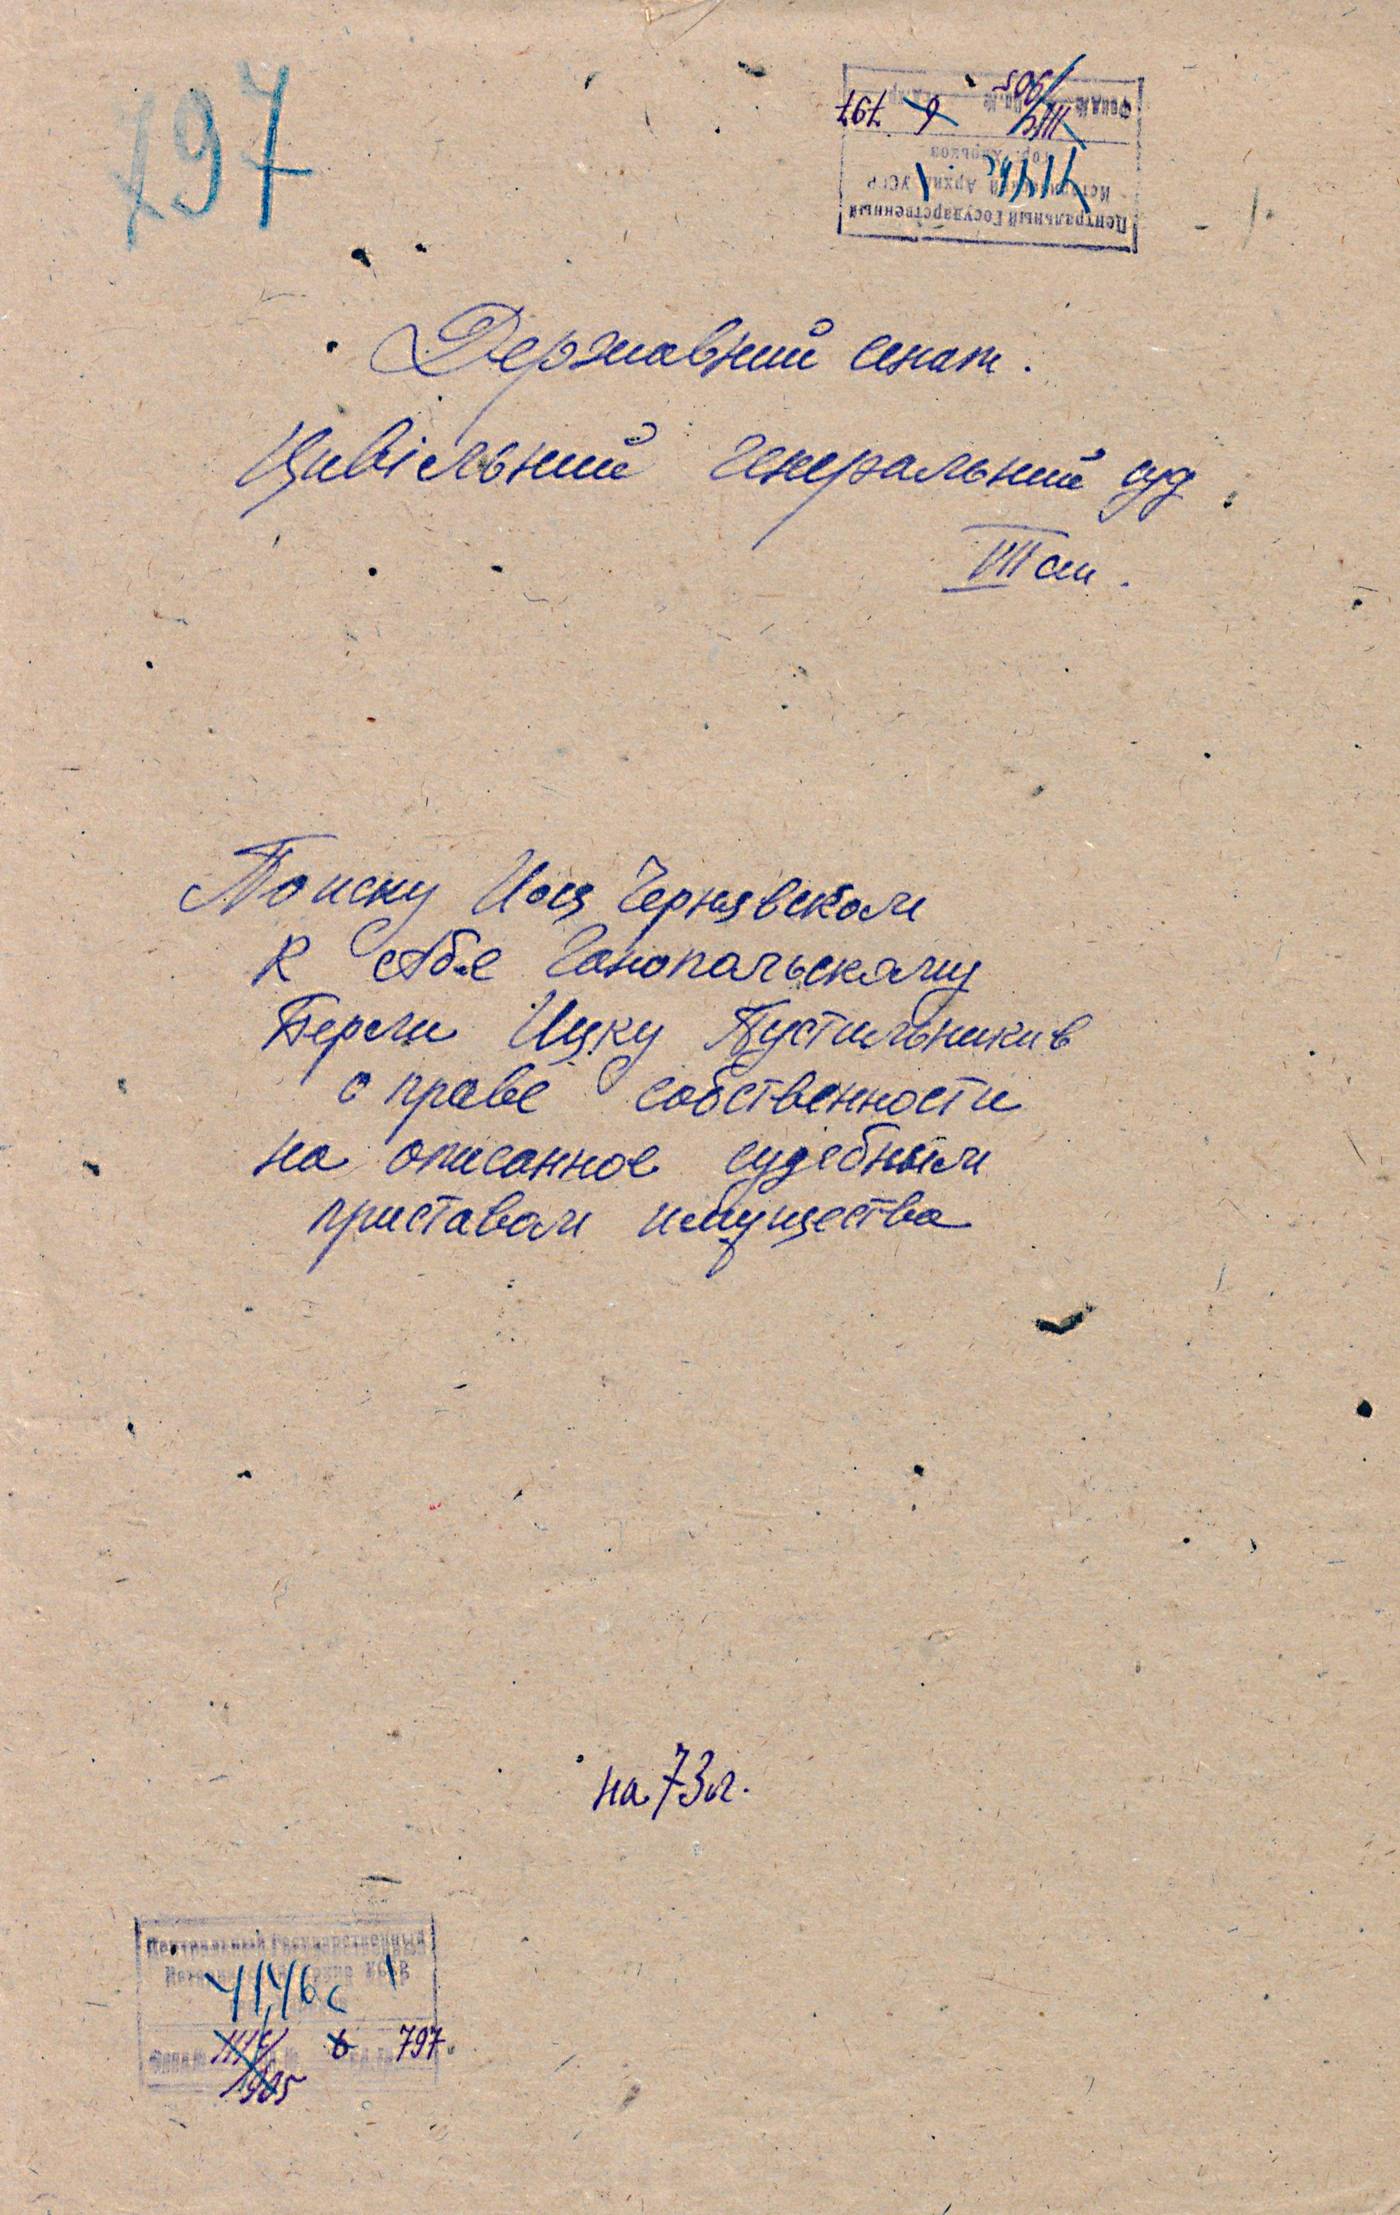 797
Центральный Государственный
Исторический Архив УССР
гор. Харьков
797
Державний сенат.
Цивільний генеральний суд
III
По иску Иос Чернявском
к Абе Ганопольскаму
Берги Ицку Пустильникив
о праве собственности
на описанное судебным
приставом имущества
на 73 л.
Центральный Государственный
4146с 1
797